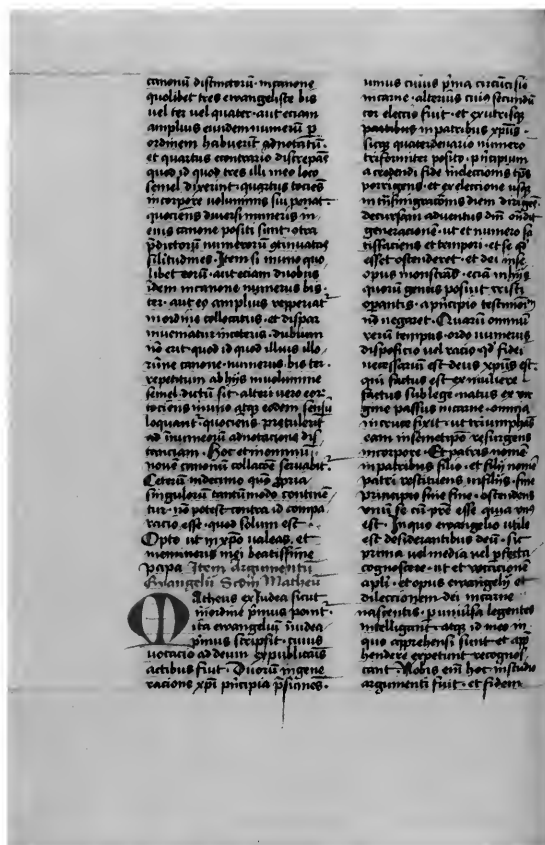 canonū distinctorū · in canone
quolibet tres ewangeliste bis
uel ter vel quater · aut eciam
amplius eundem numerū p
ordinem habuerīt adnotatū ·
et quartus econtrario discrepās
quod id quod tres illi in eo loco
semel dixerint · quartus tocies
in corpore voluminis sui ponat ·
quociens diuersi numeris in
eius canone positi sunt ·
pdictorū numerorū
silitudines · Item si in uno quo
libet eorū · aut eciam duobus
idem in canone numerus bis ·
ter · aut eo amplius repperiat~
in ordine collocatus · et dispar
inueniatur in ceteris · dubium
nō erit · quod id quod illius illo
canone · numerus bis · ter ·
repetitum ab hijs in volumine
semel dictū sit · alteri vero
tociens in suis atq eodem sensu
loquant~ · quociens pretulerit
ad numerū adnotacione dis
tanciam · Hoc et in omnium
nouē canonū collacōe seruabit~ ·
Ceterū in decimo quō ppria
singulorū tantūmodo contine
tur · nō potest contra id compa
racio esse · quod solum est ·
Opto ut in xpō valeas, et
memineris mei beatissime
papa Item argumentū
Ewangelii Matheū
Matheus ex Iudea sicut
in ordine pmus ponit~ ·
ita ewangeliū in iudea
pmus scripsit · cuius
vocacio ad deum ex publicanis
actibus fuit · Duorū in gene
racione xpī pncipia psumes ·
unius cuius pma circūcisio
in carne · alterius cuiᷤ secundū
cor eleccio fuit · et ex utrisq
patibus in patribus xpūs ·
sicq quaternario numero
triformiter posito · pncipium
a credendi fide in eleccionis tps
porrigens · et ex eleccione usq
in tnsmigracōnis diem dirigēs
decursam aduentus dnī ondit
generacionē · ut et numero sa
tisfaciens et tempori · et se qd
esset ostenderet · et dei in se
opus monstrās · eciā in hijs
quorū genus posuit cristi
operantis · a pncipio testimoīū
nō negaret · Quarū omniū
rerū tempus · ordo numerus
disposicio uel racio · qd fidei
necessariū est deus xpūs est ·
qui factus est ex muliere
factus sub lege · natus ex vir
gine passus in carne · omnia
in cruce fixit · ut triumphās
eam in semetipō resurgens
in corpore · Et patris nomē
in patribus filio · et filij nomē
patri restituens in filijs · sine
principio sine fine · ostendens
vnū se cū pre esse quia vnᷤ
est · In quo ewangelio utile
est desiderantibus deū · sic
prima vel media vel pfecta
cognoscere · ut et vocacionē
apli · et opus ewangelij et
dileccionem dei in carne
nascentis · p uniusa legentes
intelligant · atq id in eo in
quo apprehensi sunt et app
hendere expetunt recognos
cant · Nobis enī hoc in studio
argumenti fuit · et fidem